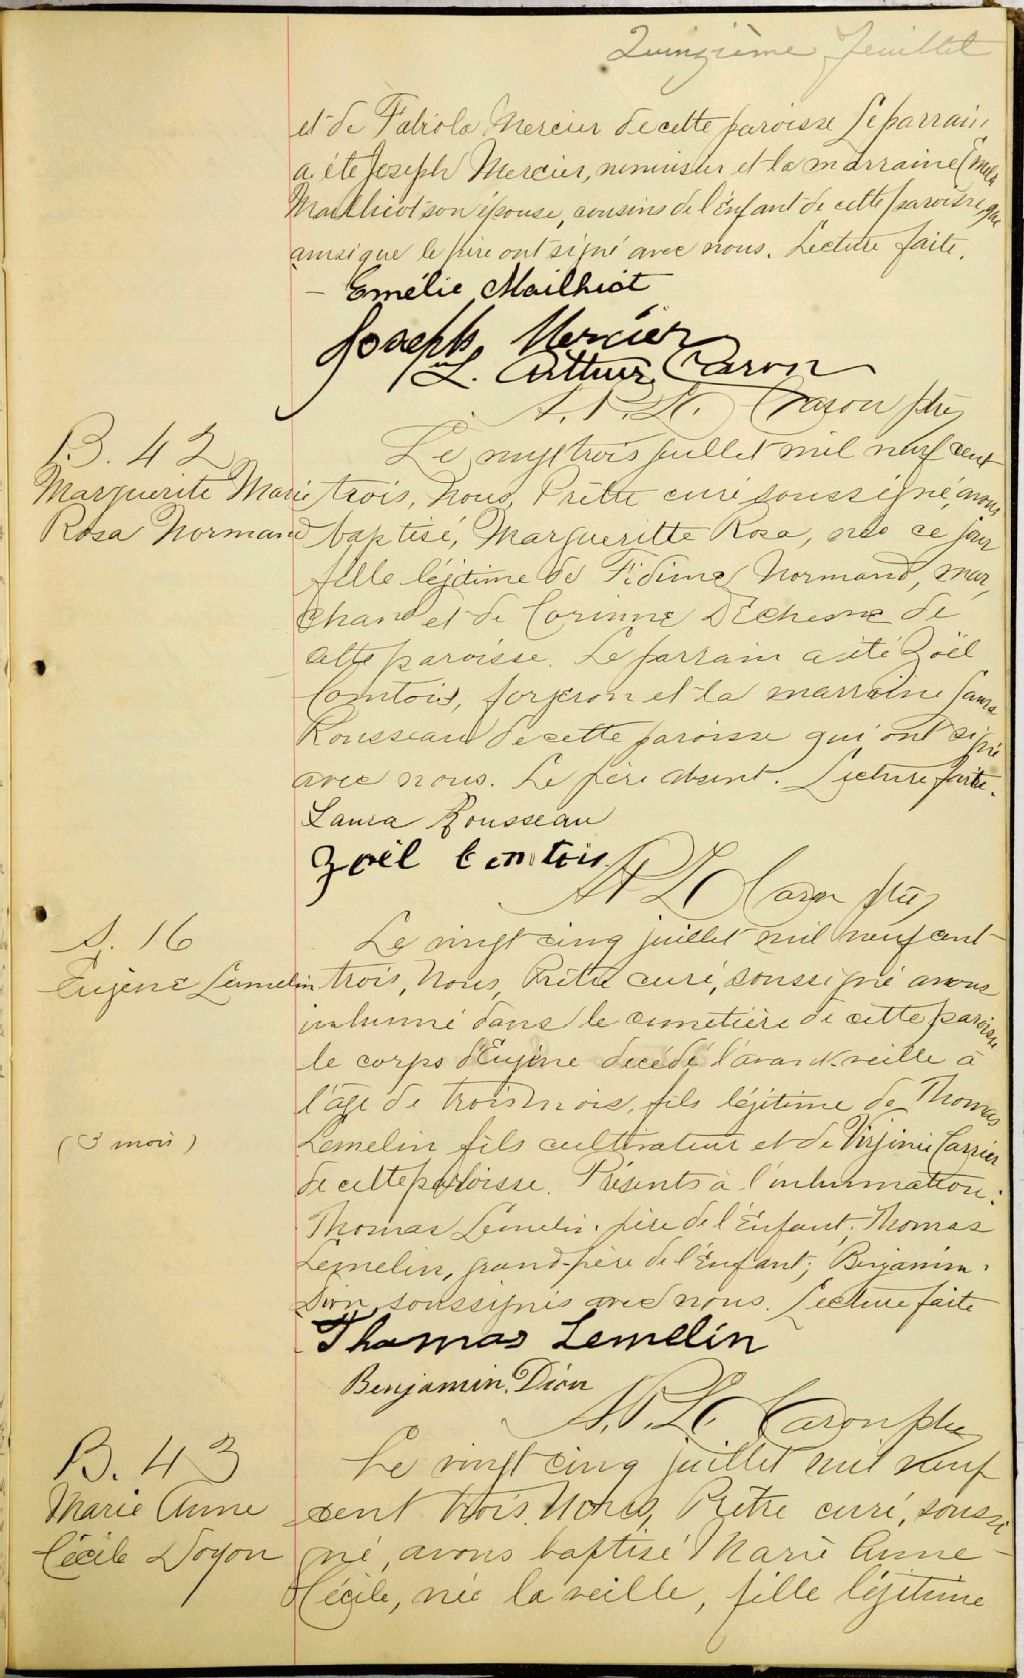 Quinzième feuillet
et de Fabiola Mercier de cette paroisse Le parrain
a été Joseph Mercier, menuisier et la marraine Emélie
Mailhiot son épouse, cousins de l'Enfant de cette paroisse, qui
ainsi que le père ont signé avec nous. Lecture faite.
- Emélie Mailhiot
Joseph Mercier
L. Arthur Caron
Caron ptre
B. 42
Marguerite Marie
Rosa Normand
Le vingt trois juillet mil neuf cent
trois, Nous, Prêtre curé soussigné, avons
baptisé, Margueritte Rosa, née ce jour
fille légitime de Fidime Normand, mar,
chand et de Corinne DEchesne de
cette paroisse. Le parrain a été Zoël
Comtois, forgeron et la marraine Laura
Rousseau de cette paroisse qui ont signé
avec nous. Le père absent. Lecture faite.
Laura Rousseau
Zoël Comtois
Caron ptre
S. 16
Eugène Lemelin
(3 mois)
Le vingt cinq juillet mil neuf cent
trois, Nous, Prêtre curé, soussigné avons
inhumé dans le cimetière de cette paroisse
le corps d'Eugène decédé l'avant-veille à
l'âge de trois mois, fils légitime de Thomas
Lemelin fils cultivateur et de Virginie Carrier
de cette paroisse. Présents à l'inhumation:
Thomas Lemelin, père de l'Enfant; Thomas
Lemelin, grand-père de l'Enfant; Benjamin
Dion, soussignés avec nous. Lecture faite
Thomas Lemelin
Benjamin Dion
Caron ptre
B. 43
Marie Anne
Cécile Doyon
Le vingt cinq juillet mil neuf
cent trois, Nous, Prêtre curé, soussi
gné, avons baptisé Marie Anne
Cécile, née la veille, fille légitime